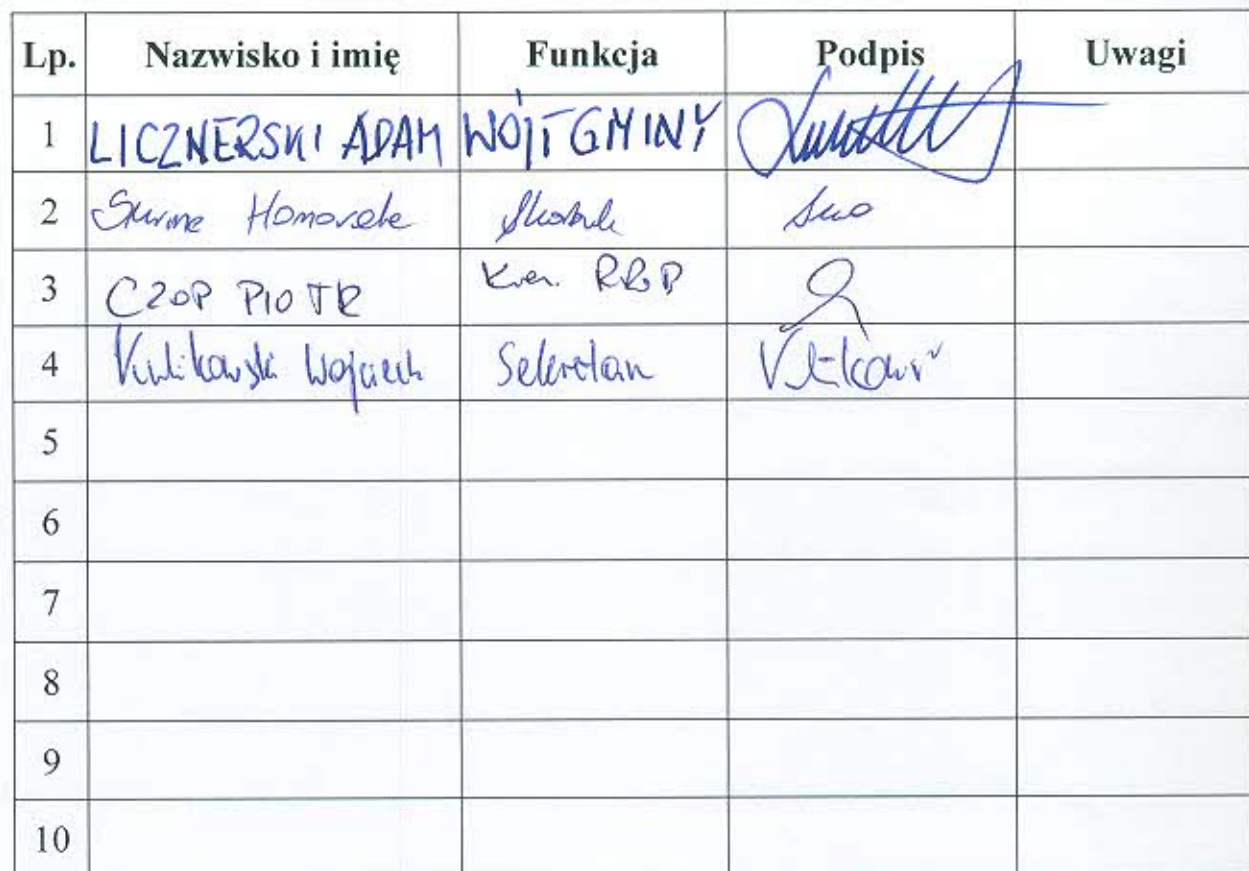 Lp. Nazwisko i imię Funkcja Podpis Uwagi
1 LICZNERSKI ADAM WÓJT GMINY
2
3 CZOP PIOTR Kier. RRGP
4 Kulikowski Wojciech Sekretarz
5
6
7
8
9
10